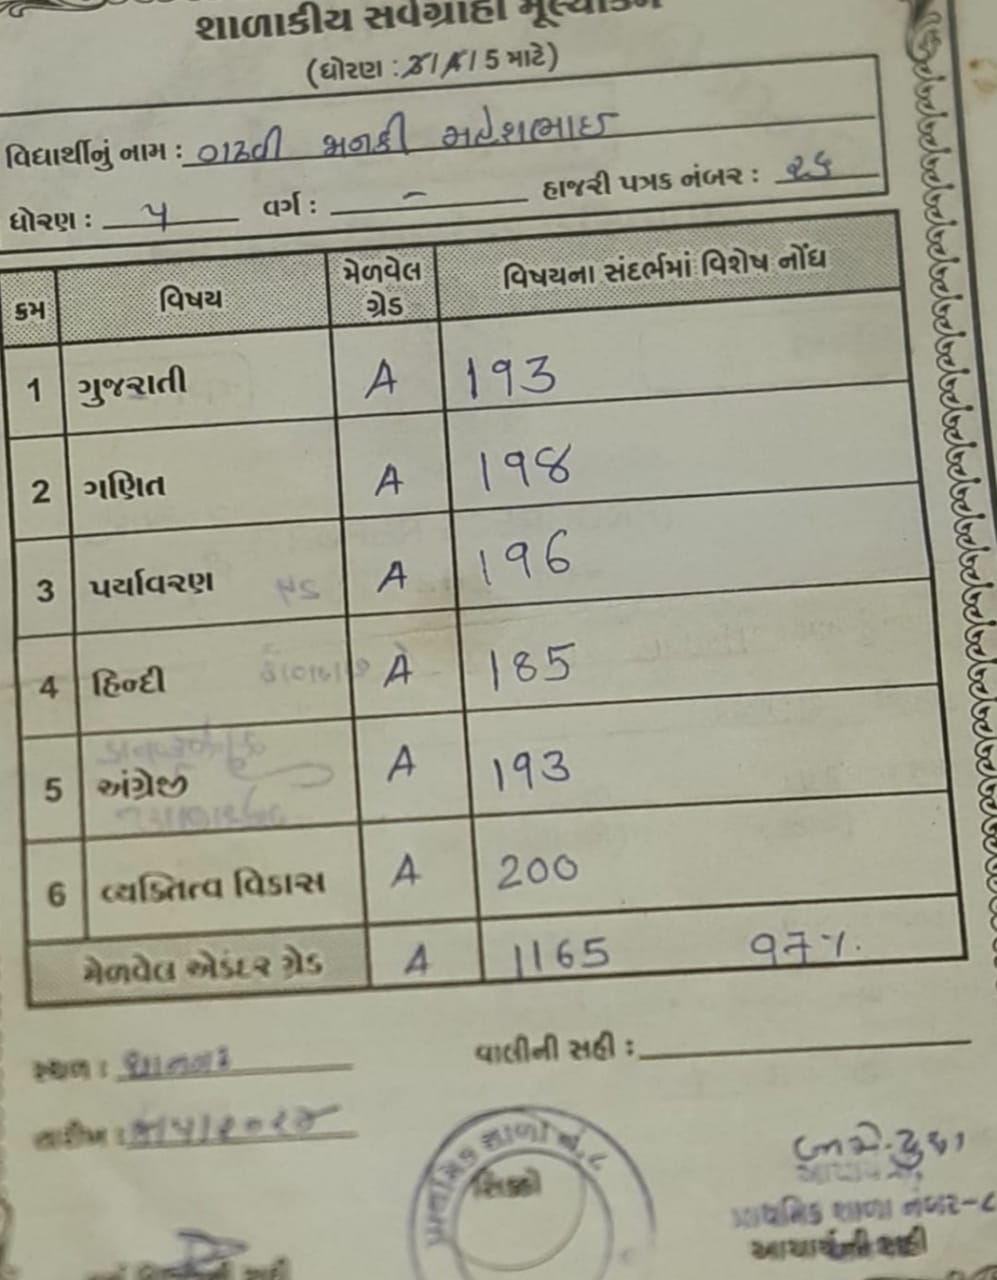 શાળાકીય સર્વગ્રાહી મૂલ્યાંકન
(ધોરણ : 3 / 4 / 5 માટે)
વિદ્યાર્થીનું નામ : મહેશભાઈ
ધોરણ : ૫ વર્ગ : – હાજરી પત્રક નંબર : ૨૬
ક્રમ વિષય મેળવેલ ગ્રેડ વિષયના સંદર્ભમાં વિશેષ નોંધ
1 ગુજરાતી A 193
2 ગણિત A 198
3 પર્યાવરણ A 196
4 હિન્દી A 185
5 અંગ્રેજી A 193
6 વ્યક્તિત્વ વિકાસ A 200
મેળવેલ એકંદર ગ્રેડ A 1165 97%.
સ્થળ : થાનગઢ વાલીની સહી :
તારીખ :
પ્રાથમિક શાળા નં. ૮
સિક્કો
પ્રાથમિક શાળા નંબર-૮
આચાર્યની સહી